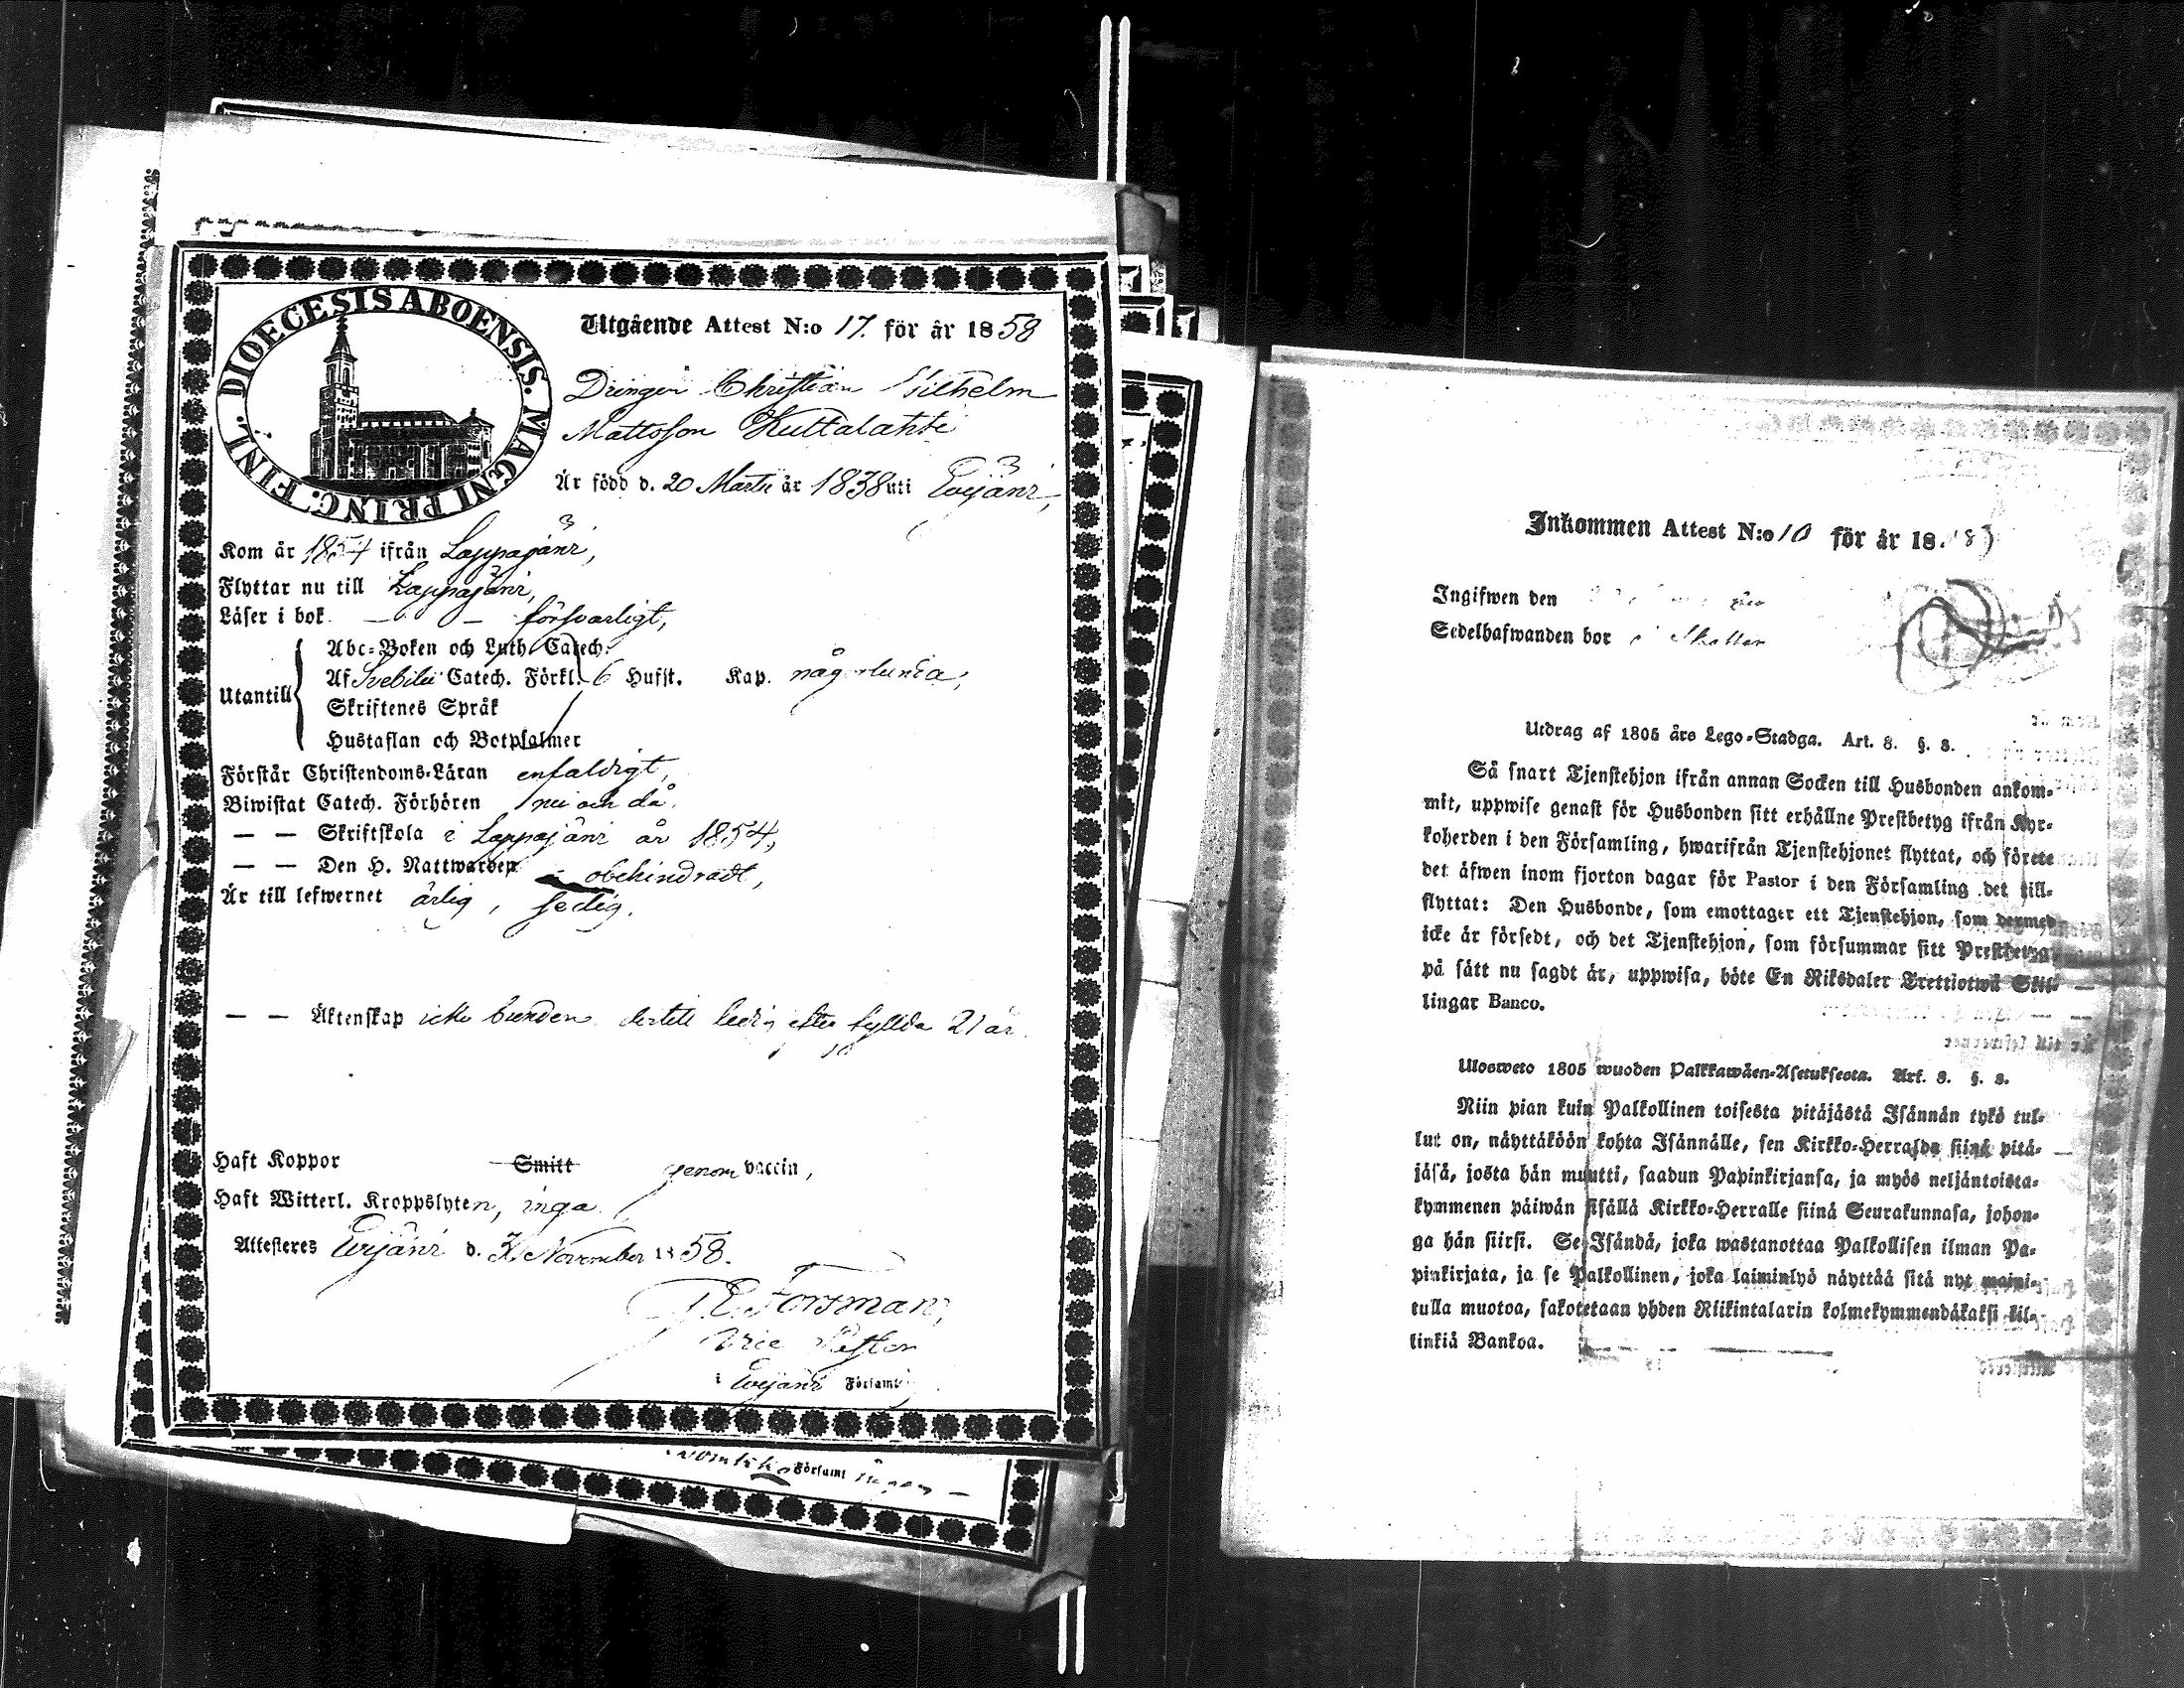 DIOECESIS ABOENSIS. MAGNI PRINC. FINL.
Utgående Attest N:o 17. för år 1858
Drängen Christian Wilhelm
Mattsson Kuttalahti
Är född d. 20 Martii år 1838 uti Evijärvi,
Kom år 1854 ifrån Lappajärvi,
Flyttar nu till Lappajärvi,
Läser i bok — — försvarligt,
Utantill
Abc-Boken och Luth. Catech.
Af Svebilii Catech. Förkl. 6 Hufst. Kap. någorlunda,
Skriftenes Språk
Hustaflan och Botpsalmer
Förstår Christendoms-Läran enfaldigt,
Biwistat Catech. Förhören nu och då,
— — Skriftskola i Lappajärvi år 1854,
— — Den H. Nattwarden obehindradt,
Är till lefwernet ärlig, sedig.
— — Äktenskap icke bunden, dertill ledig efter fyllda 21 år.
Haft Koppor Smitt genom vaccin,
Haft Witterl. Kroppslyten, inga.
Attesteres Evijärvi d. November 1858.
Forsman,
Vice Pastor
i Evijärvi Församl.
Församl
Inkommen Attest N:o 10 för år 18
Ingifwen den
Sedelhafwanden bor
Utdrag af 1805 års Lego-Stadga. Art. 8. §. 8.
Så snart Tjenstehjon ifrån annan Socken till Husbonden ankom-
mit, uppwise genast för Husbonden sitt erhållne Prestbetyg ifrån Kyr-
koherden i den Församling, hwarifrån Tjenstehjonet flyttat, och förete
det äfwen inom fjorton dagar för Pastor i den Församling det till-
flyttat: Den Husbonde, som emottager ett Tjenstehjon, som dermed
icke är försedt, och det Tjenstehjon, som försummar sitt Prestbetyg
på sätt nu sagdt är, uppwisa, böte En Riksdaler Trettiotwå Skil-
lingar Banco.
Ulosweto 1805 wuoden Palkkawäen-Asetuksesta. Art. 8. §. 8.
Niin pian kuin Palkollinen toisesta pitäjästä Isännän tykö tul-
lut on, näyttäköön kohta Isännälle, sen Kirkko-Herralda siinä pitä-
jäsä, josta hän muutti, saadun Papinkirjansa, ja myös neljäntoista-
kymmenen päiwän sisällä Kirkko-Herralle siinä Seurakunnasa, johon-
ga hän siirsi. Se Isändä, joka wastanottaa Palkollisen ilman Pa-
pinkirjata, ja se Palkollinen, joka laiminlyö näyttää sitä nyt maini-
tulla muotoa, sakotetaan yhden Riikintalarin kolmekymmendäkaksi kil-
linkiä Bankoa.